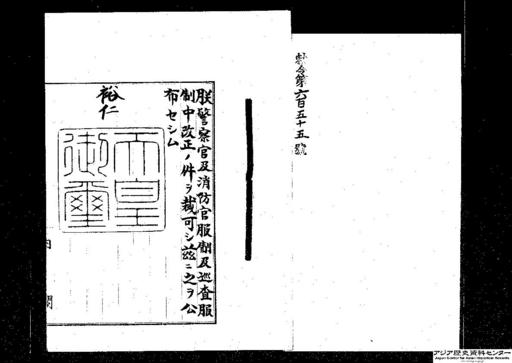 勅令第六百五十五號
朕警察官及消防官服制及巡査服
制中改正ノ件ヲ裁可シ茲ニ之ヲ公
布セシム
裕仁
天皇
御璽
内閣
アジア歴史資料センター
Japan Center for Asian Historical Records